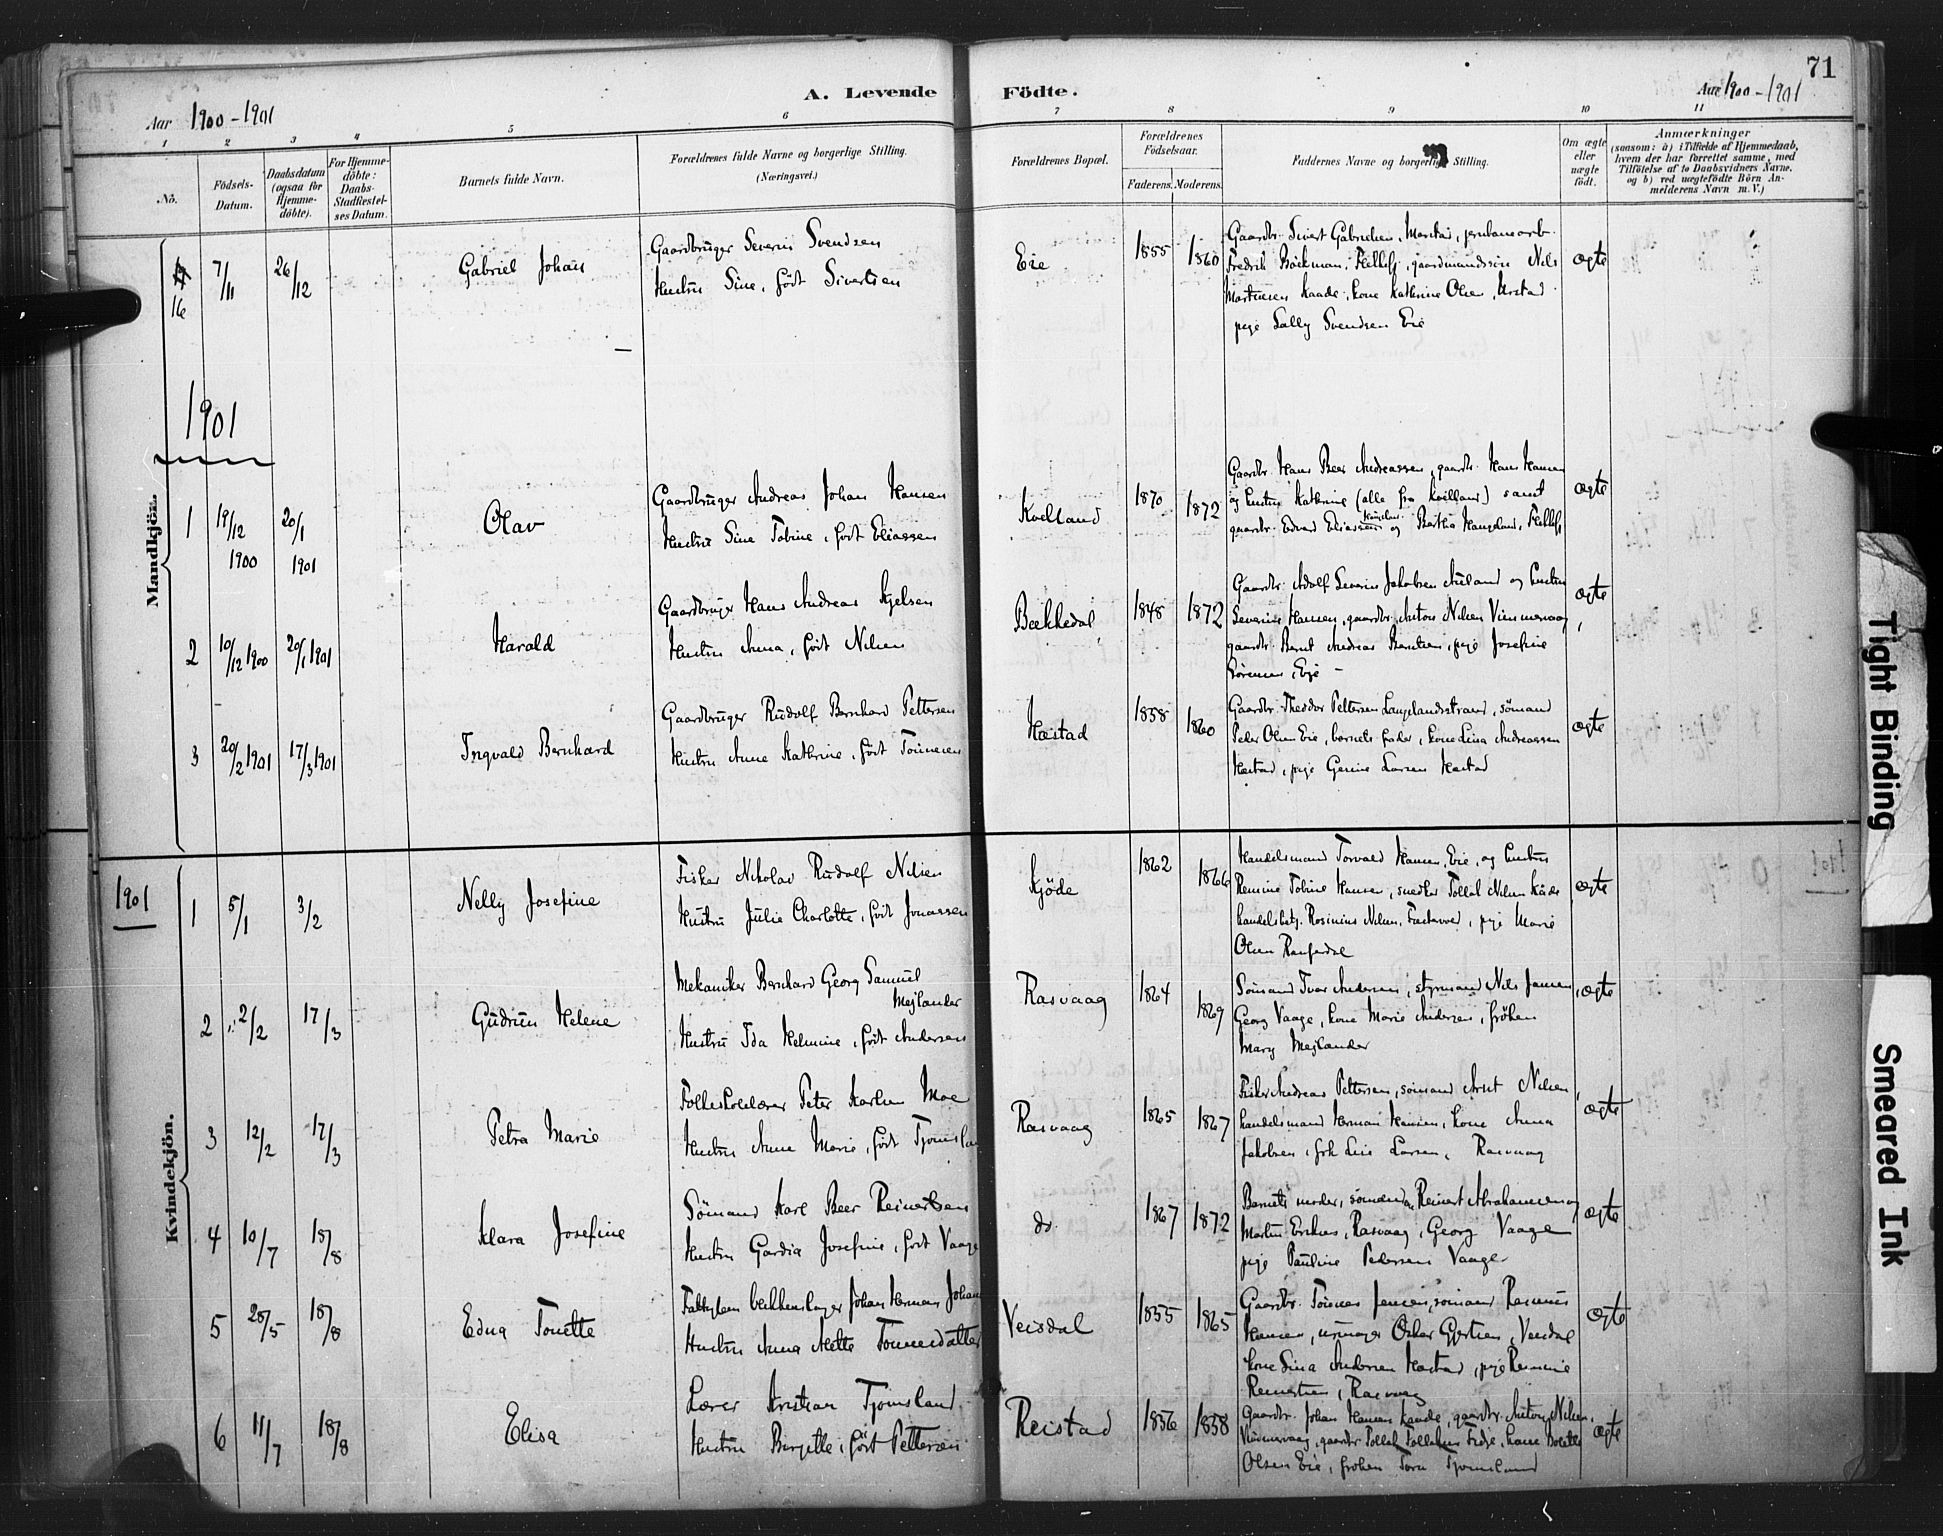 71
Aar 1900-1901
A. Levende Födte.
Aar 1900-1901
1 2 3 4 5 6 7 8 9 10 11
No.
Födsels-Datum.
Daabsdatum (ogsaa for Hjemme-döbte).
For Hjemme-döbte: Daabs-Stadfæstel-ses Datum.
Barnets fulde Navn.
Forældrenes fulde Navne og borgerlige Stilling. (Næringsvei.)
Forældrenes Bopæl.
Forældrenes Födselsaar.
Faderens. Moderens.
Faddernes Navne og borgerlige Stilling.
Om ægte eller uægte født.
Anmærkninger
(saasom: a) i Tilfælde af Hjemmedaab,
hvem der har forrettet samme, med
Tilföielse af to Daabsvidners Navne.
og b) ved uægtefödte Börn An-
melderens Navn m. V.)
Mandkjön.
16 7/11 26/12 Gabriel Johan
Gaardbruger Severin Svendsen
Hustru Sine, født Sivertsen
Eie 1855 1860
Gaardbr. Sivert Gabrielsen,
Fredrik Bäckman, Nils
Kaade, kone Kathrine Olsen,
pige Sally Svendsen Eie
ægte
1901
1 19/12 1900 20/1 1901 Olav
Gaardbruger Andreas Johan Hansen
Hustru Sine Tobine, født Eliassen
Kvelland 1870 1872
Gaardbr. Hans Beer Andreassen, gaardbr. Hans Hansen
og hustru Kathrine (alle fra Kvelland) samt
gaardbr. Edvard Eliassen og Bertha
ægte
2 10/12 1900 20/1 1901 Harald
Gaardbruger Hans Andreas
Hustru Anna, født Nilsen
Bækkedal 1848 1872
Gaardbr. Adolf Severin Jakobsen og hustru
Severine Hansen, gaardbr. Anton Nilsen
gaardbr. Bernt Andreas Berntsen, pige Josefine
Sørensen, Eije
ægte
3 20/2 1901 17/3 1901 Ingvald Bernhard
Gaardbruger Rudolf Bernhard Pettersen
Hustru Anne Kathrine, født Tönnesen
Hæstad 1858 1860
Gaardbr. Theodor Pettersen Langelandsstrand, sömand
Peder Olsen Eie, barnets fader, kone Lina Andreassen
Hæstad, pige Larsen Hæstad
ægte
Kvindekjön.
1901
1 5/1 3/2 Nelly Josefine
Fisker Nikolai Rudolf Nilsen
Hustru Julie Charlotte, født Jonassen
Kjöde 1862 1866
Handelsmand Torvald Hansen, Eie, og hustru
Tobine Hansen, Tollak Nilsen
handelsbetj. Nilsen, pige Marie
Olsen
ægte
2 2/2 17/3 Gudrun Helene
Mekaniker Bernhard Georg Samuel
Mejlænder
Hustru Ida Helmine, født Andersen
Rasvaag 1864 1869
Sömand Ivar Andersen, styrmand Nils Jansen,
Georg Vaage, kone Marie Andersen, fröken
Mary Mejlænder
ægte
3 12/2 17/3 Petra Marie
Folkeskolelærer Peter Karlsen Moe
Hustru Anne Marie, født
Rasvaag 1865 1867
Fisker Andreas Pettersen, sömand Arnt Nilsen,
handelsmand Herman Hansen, kone Anna
Jakobsen, frk Larsen, Rasvaag
ægte
4 10/7 18/8 Klara Josefine
Sömand Karl Beer Reinertsen
Hustru Gardia Josefine, født Vaage
do 1867 1872
Barnets moder, sömænd Reinert Abrahamsen og
Martin Eriksen, Rasvaag, Georg Vaage
pige Pauline Pedersen Vaage
ægte
5 28/5 18/8 Edna Tonette
blikkenslager Johan Herman Johan
Hustru Anna Mette Tönnesdatter
Veisdal 1855 1865
Gaardbr. Tönnes Jensen, sömand Rasmus
Hansen, urmager Oskar Gjertsen, Veisdal
kone Lina Andersen Hæstad, pige
Reinertsen, Rasvaag
ægte
6 11/7 18/8 Elisa
Lærer Kristian Tjomsland
Hustru Birgitte, født Pettersen
Reistad 1856 1858
Gaardbr. Johan Hansen Kaade, gaardbr. Anton Nilsen,
gaardbr. Tollak Tollaksen kone
Olsen Eie, fröken Tora Tjomsland
ægte
Tight Binding
Smeared Ink